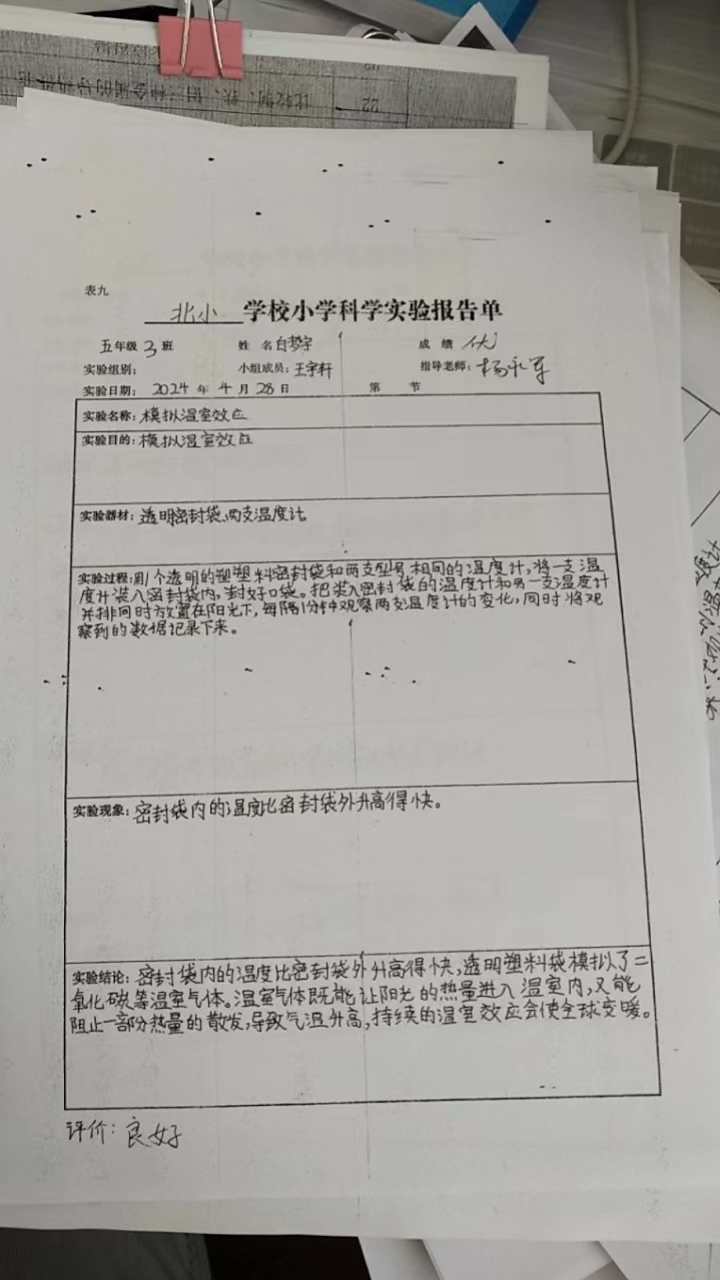 22
表九
北小 学校小学科学实验报告单
五年级 3 班 姓 名 白梦宇 成 绩 优
实验组别: 小组成员: 王宇轩 指导老师: 杨永军
实验日期: 2024 年 4 月 28 日 第 节
实验名称: 模拟温室效应
实验目的: 模拟温室效应
实验器材: 透明密封袋、两支温度计
实验过程: 用1个透明的塑塑料密封袋和两支型号相同的温度计,将一支温
度计装入密封袋内,封好口袋。把装入密封袋的温度计和另一支温度计
并排同时放置在阳光下,每隔1分钟观察两支温度计的变化,同时将观
察到的数据记录下来。
实验现象: 密封袋内的温度比密封袋外升高得快。
实验结论: 密封袋内的温度比密封袋外升高得快,透明塑料袋模拟了二
氧化碳等温室气体。温室气体既能让阳光的热量进入温室内,又能
阻止一部分热量的散发,导致气温升高,持续的温室效应会使全球变暖。
评价: 良好